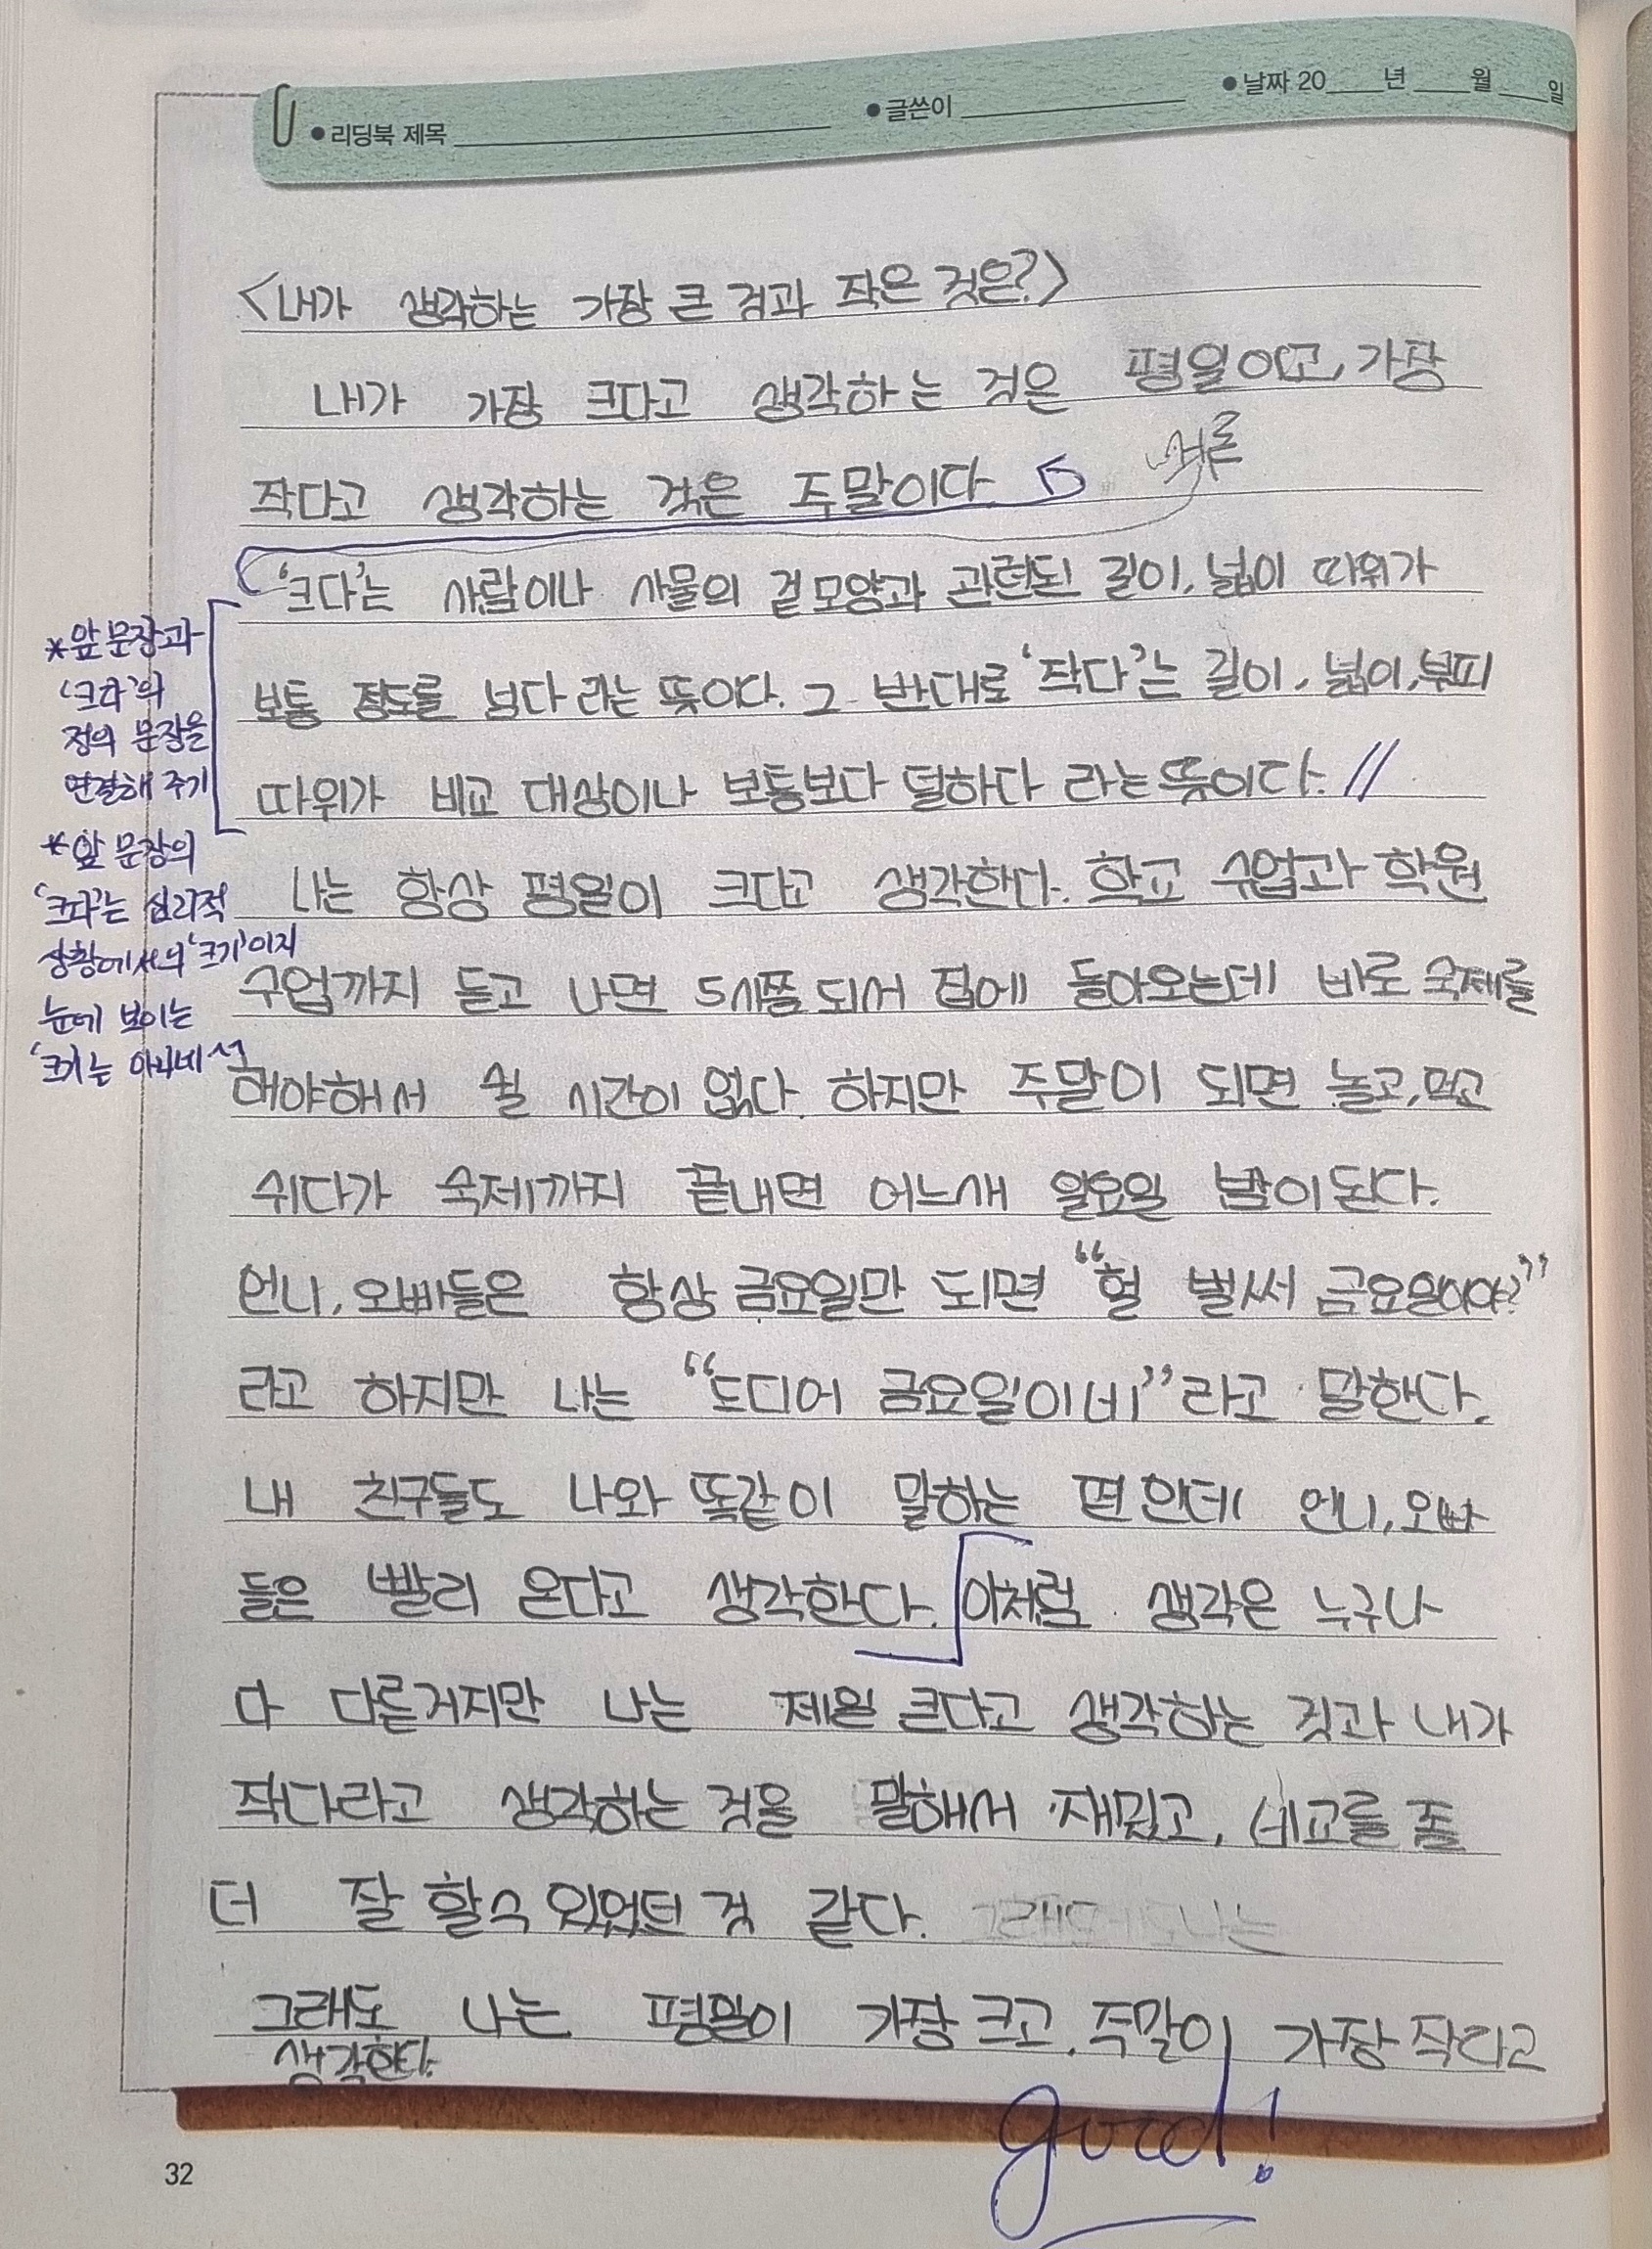 ●리딩북 제목 ●글쓴이 ●날짜 20 년 월 일
<내가 생각하는 가장 큰 것과 작은 것은?>
내가 가장 크다고 생각하는 것은 평일이고, 가장
서론
작다고 생각하는 것은 주말이다
'크다'는 사람이나 사물의 겉모양과 관련된 길이, 넓이 따위가
보통 정도를 넘다 라는 뜻이다. 그 반대로 '작다'는 길이, 넓이, 부피
따위가 비교 대상이나 보통보다 덜하다 라는 뜻이다. //
*앞 문장과
'크다'의
정의 문장을
연결해 주기
*앞 문장의
'크다'는 심리적
상황에서의 '크기'이지
눈에 보이는
'크기'는 아니네^^
나는 항상 평일이 크다고 생각한다. 학교 수업과 학원
수업까지 듣고 나면 5시쯤 되서 집에 돌아오는데 바로 숙제를
해야해서 쉴 시간이 없다. 하지만 주말이 되면 놀고, 먹고
쉬다가 숙제까지 끝내면 어느새 일요일 밤이 된다.
언니, 오빠들은 항상 금요일만 되면 “헐 벌써 금요일이야?”
라고 하지만 나는 “드디어 금요일이네”라고 말한다.
내 친구들도 나와 똑같이 말하는 편인데 언니, 오빠
들은 빨리 온다고 생각한다. 이처럼 생각은 누구나
다 다른거지만 나는 제일 크다고 생각하는 것과 내가
작다라고 생각하는 것을 말해서 재밌고, 비교를 좀
더 잘 할수 있었던 것 같다.
그래도 나는 평일이 가장 크고, 주말이 가장 작다고
생각한다.
good!
32